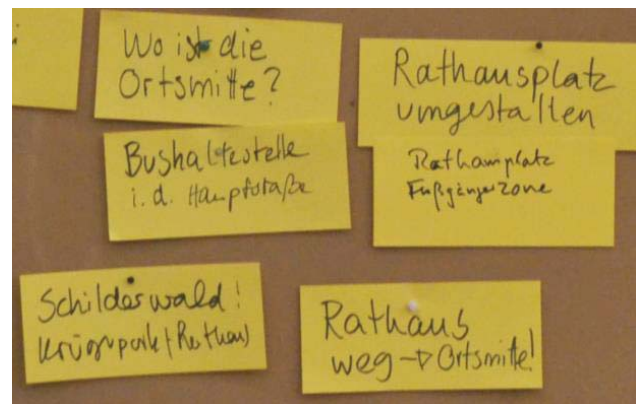 Wo ist die
Ortsmitte?
Rathausplatz
umgestalten
Bushaltestelle
i.d. Hauptstraße
Rathausplatz
Fußgängerzone
Schilderwald!
Rathaus
weg → Ortsmitte!